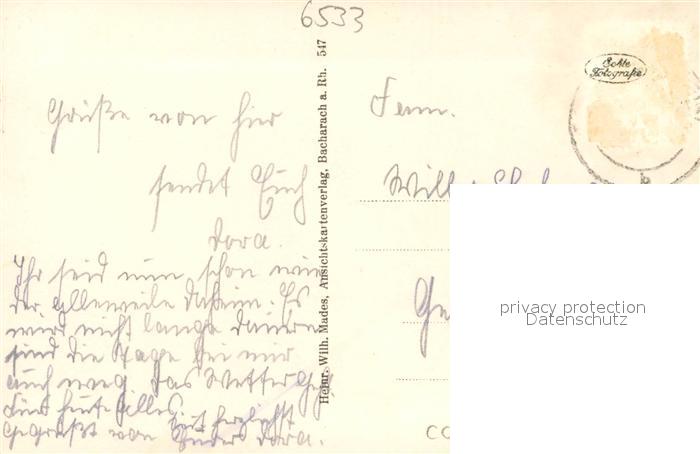 6533
Grüße von hier
sendet Euch
Dora.
Ihr seid nun schon wie
der alleweile daheim. Es
wird nicht lange dauern
sind die Tage bei mir
auch weg. Das Wetter
Für heute Alles
Seit herzlichst
gegrüßt von Dora.
Heinr. Wilh. Mades, Ansichtskartenverlag, Bacharach a. Rh. 547
Echte
Fotografie
Fam.
Willy
privacy protection
Datenschutz